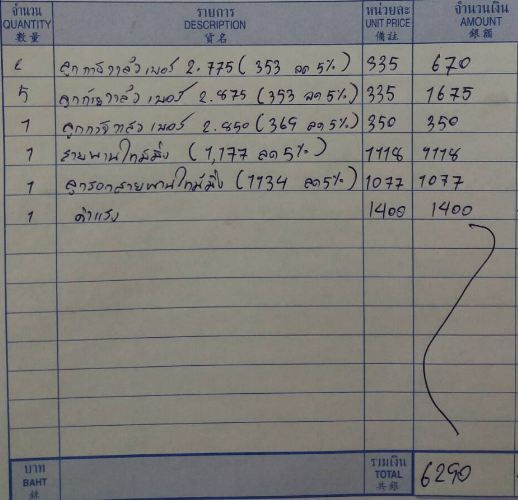 จำนวน รายการ หน่วยละ จำนวนเงิน
QUANTITY DESCRIPTION UNIT PRICE AMOUNT
數量 貨名 備註 銀額
2 วาล์ว เบอร์ 2.775 (353 ลด 5%) 335 670
5 วาล์ว เบอร์ 2.875 (353 ลด 5%) 335 1675
1 วาล์ว เบอร์ 2.850 (369 ลด 5%) 350 350
1 สายพานไทม์มิ่ง (1,177 ลด 5%) 1118 1118
1 ลูกรอกสายพานไทม์มิ่ง (1134 ลด 5%) 1077 1077
1 ค่าแรง 1400 1400
บาท รวมเงิน
BAHT TOTAL 6290
銖 共銀